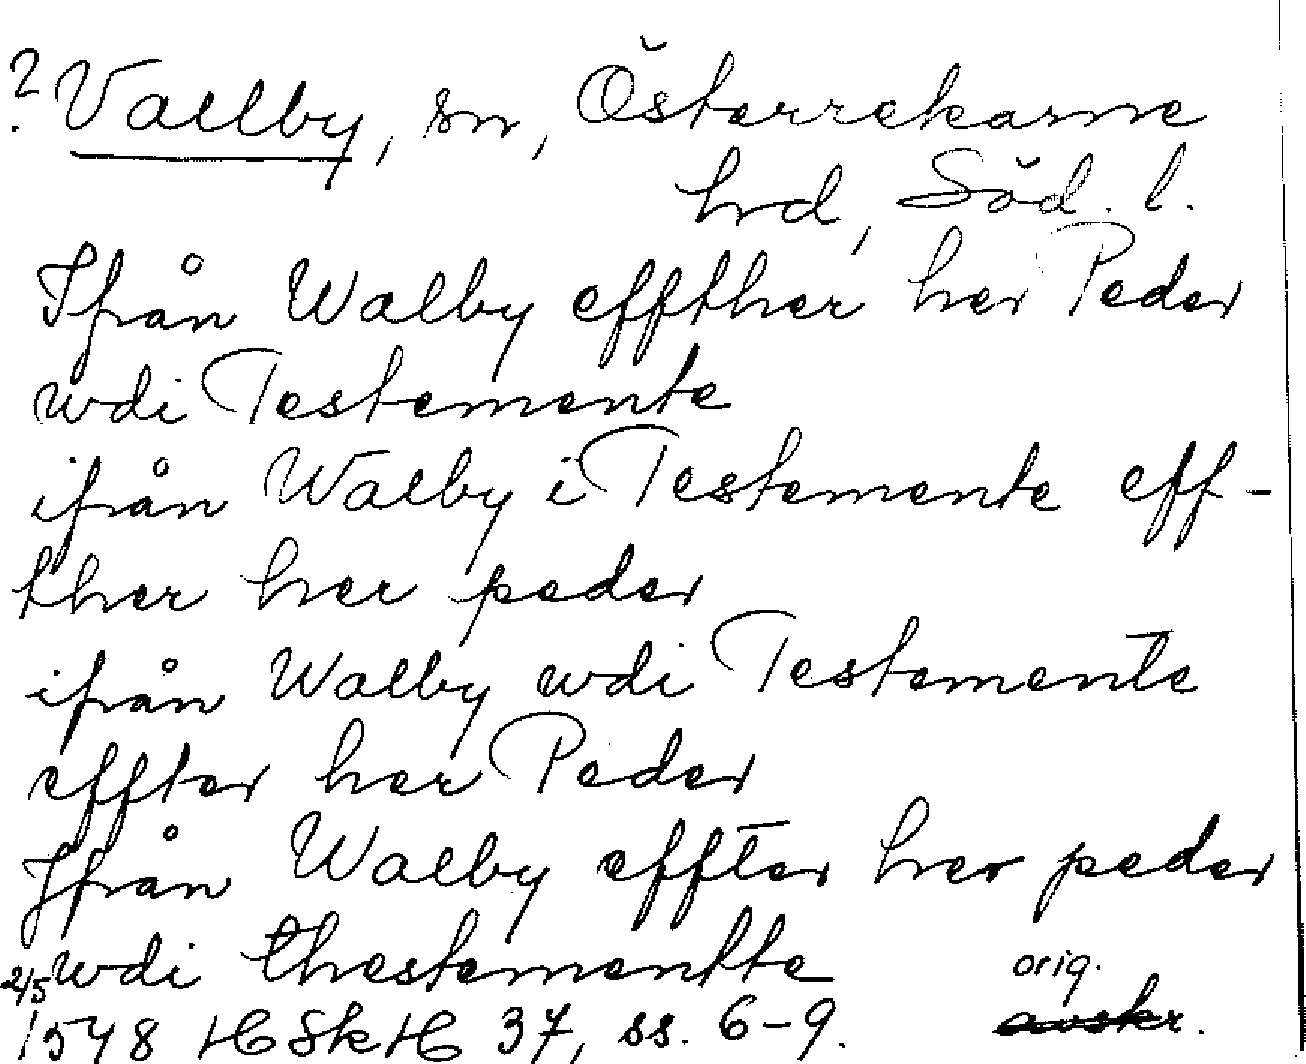 ? Vallby, sn, Österrekarne
hrd, Söd. l.
Ifrån Walby effther her Peder
wdi Testemente
ifrån Walby i Testemente eff-
ther her peder
ifrån Walby wdi Testemente
effter her Peder
Jfrån Walby effter her peder
wdi thestementte
orig.
2/5 1548 HSkH 37, ss. 6-9. avskr.